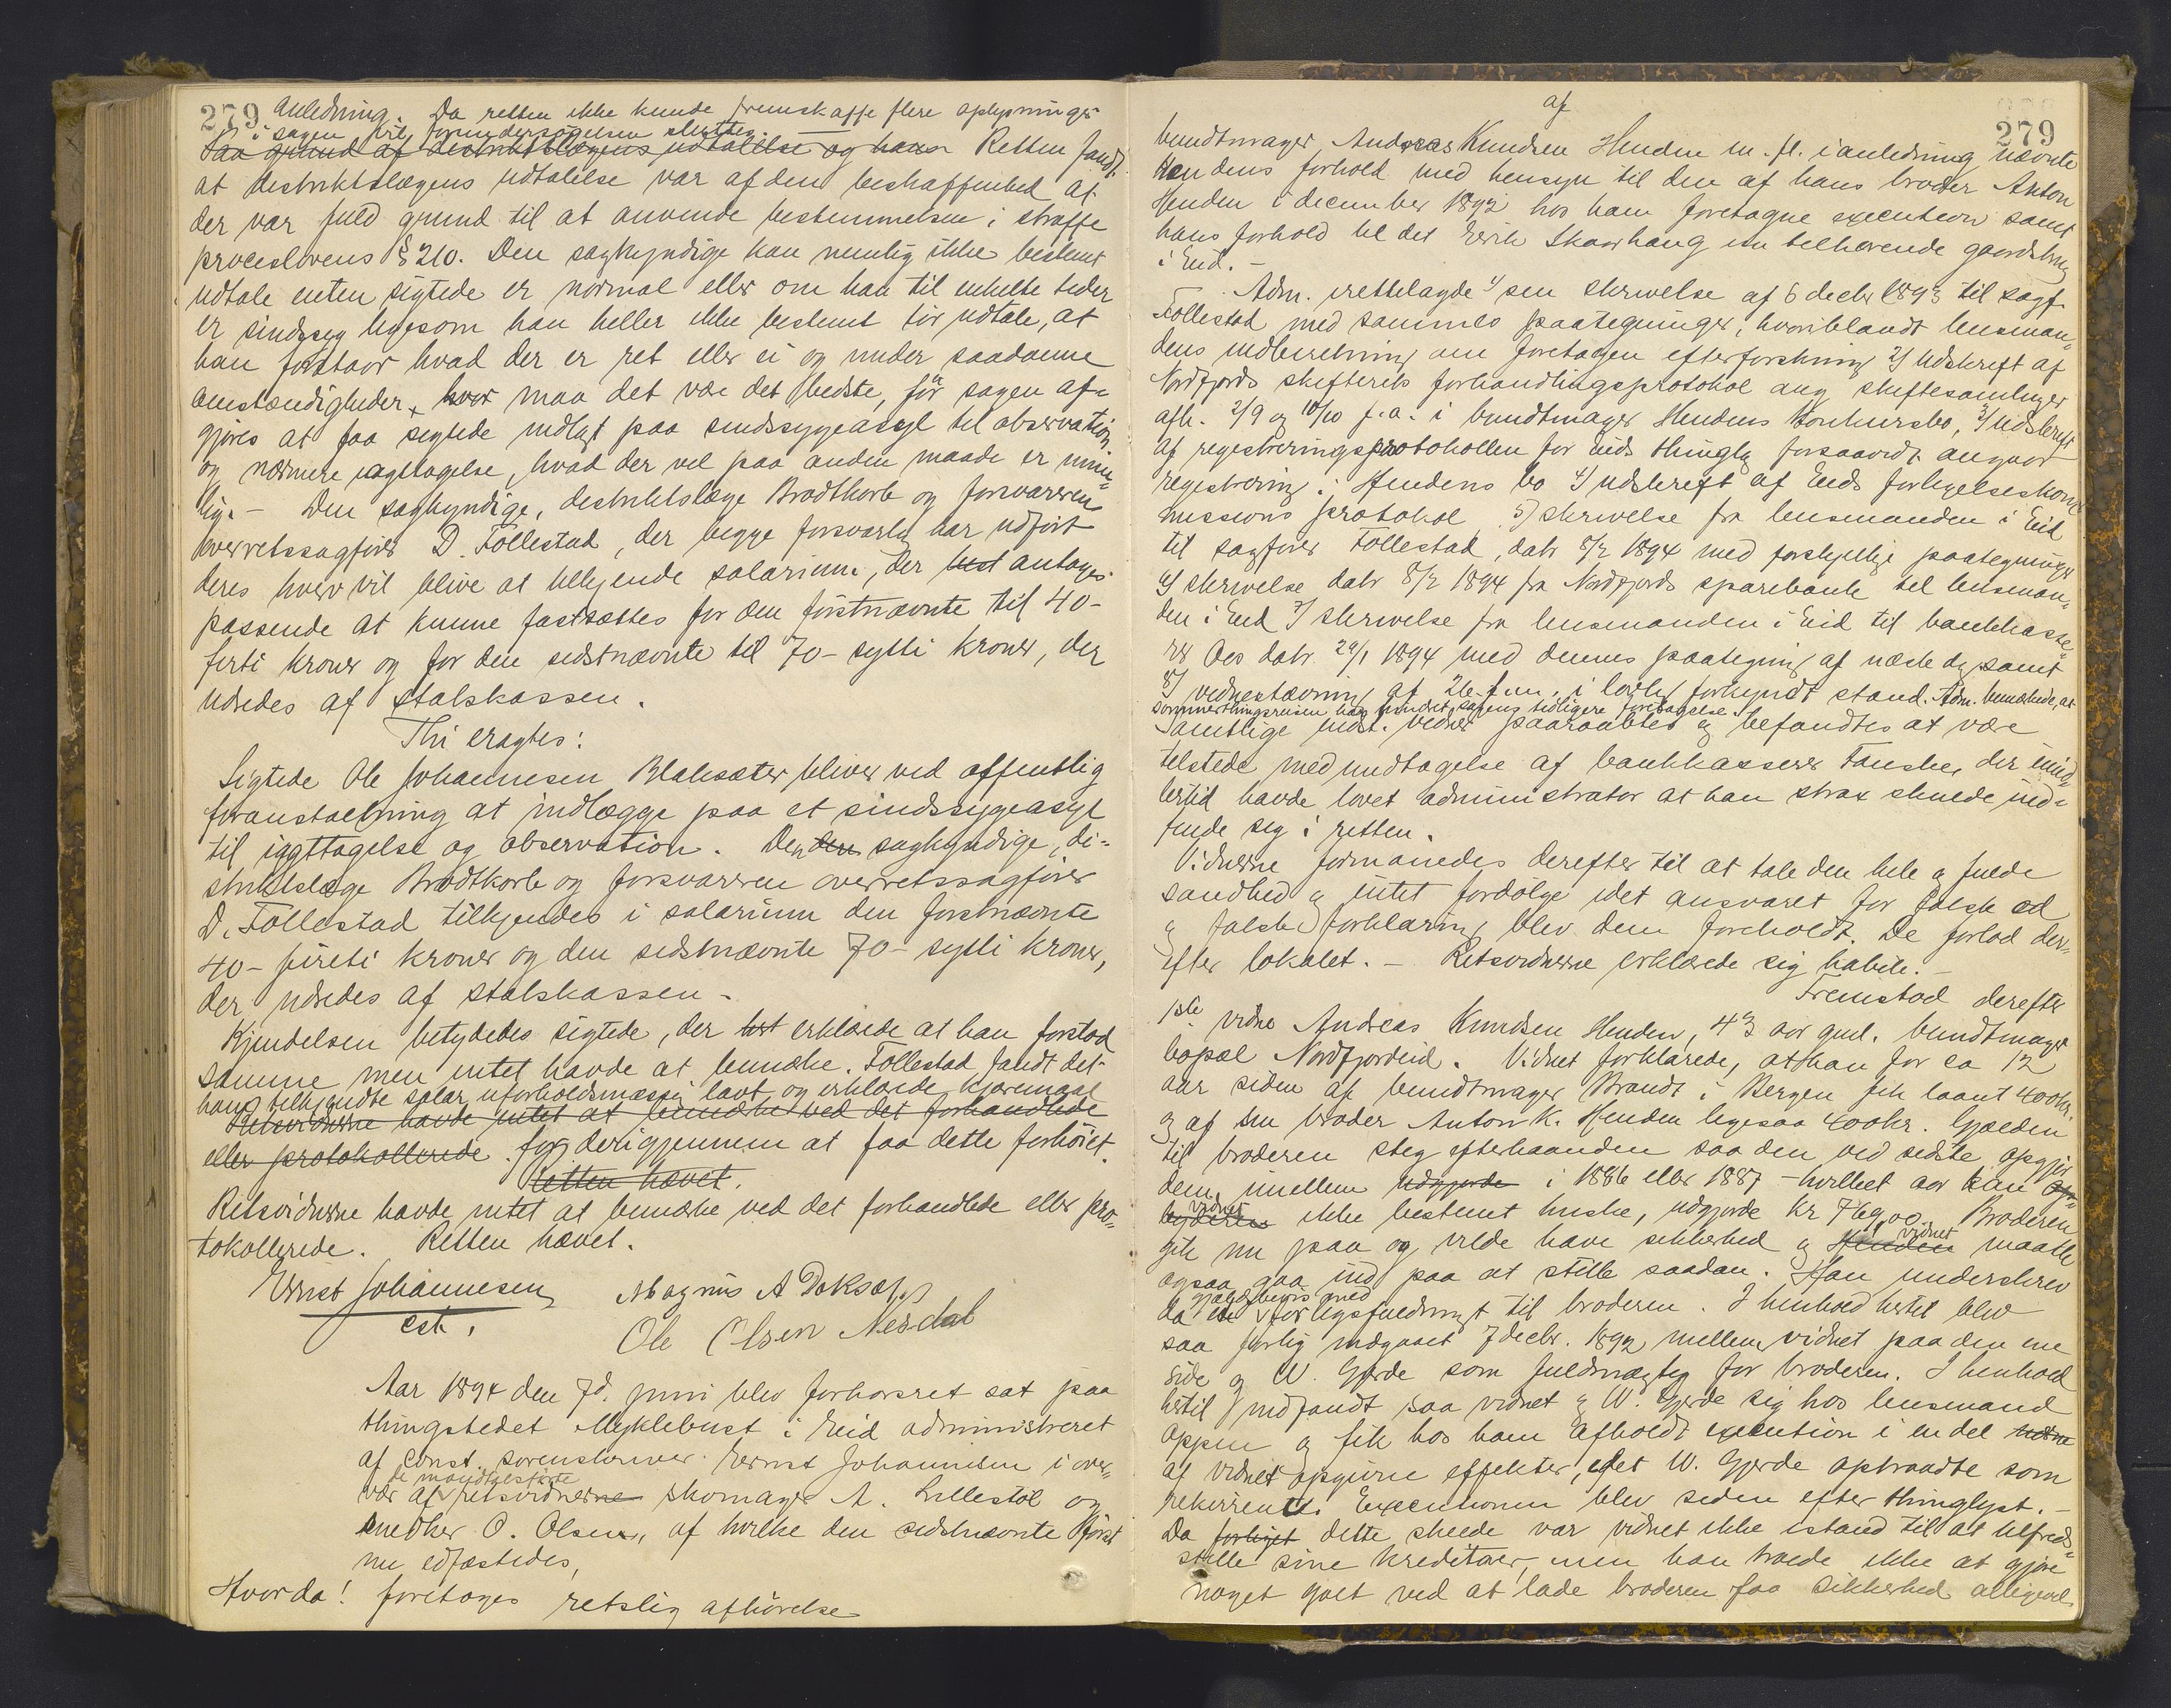 279 anledning. Da retten ikke kunde fremskaffe flere oplysninger
i sagen vil forundersøgelsen sluttes.
Paa grund af destriktslægens udtalelse og hans Retten fandt
at destriktslægens udtalelse var af den beskaffenhed at
der var fuld grund til at anvende bestemmelsen i straffe
proceslovens § 210. Den sagkyndige kan nemlig ikke bestemt
udtale enten sigtede er normal eller om han til enkelte tider
er sindssyg ligesom han heller ikke bestemt tør udtale, at
han forstaar hvad der er ret eller ei og under saadanne
omstændigheder hvor maa det være det bedste, før sagen af=
gjøres at faa sigtede indlagt paa sindssygeasyl til observation
og nærmere iagttagelse, hvad der vel paa anden maade er umu=
lig. – Den sagkyndige, destriktslæge Brodtkorb og forsvareren
overretssagfører D. Føllestad, der begge forsvarlig har udført
deres hverv vil blive at tilkjende salarium, der best antages
passende at kunne fastsættes for den førstnævnte til 40–
firti kroner og for den sidstnævnte til 70– sytti kroner, der
udredes af statskassen.
Thi eragtes:
Sigtede Ole Johannesen Blaksæter bliver ved offentlig
foranstaltning at indlægge paa et sindssygeasyl
til iagttagelse og observation. Den den sagkyndige, di=
striktslæge Brodtkorb og forsvareren overretssagfører
D. Føllestad tilkjendes i salarium den førstnævnte
40– fireti kroner og den sidstnævnte 70– sytti kroner,
der udredes af statskassen –
Kjendelsen betydedes sigtede, der best erklærede at han forstod
samme men intet havde at bemærke. Føllestad fandt det
ham tilkjendte salar uforholdsmæssig lavt og erklærede kjæremaal
Retsvidnerne havde intet at bemærke ved det forhandlede
eller protokollerede. for derigjennem at faa dette forhøiet.
Retten hævet.
Retsvidnerne havde intet at bemærke ved det forhandlede eller pro=
tokollerede. Retten hævet.
Ernst Johannesen Magnus A
cst. Ole Olsen Nesdal
Aar 1894 den 7d. juni blev forhørsret sat paa
thingstedet Myklebust i Eid administreret
af const. sorenskriver Ernst Johannesen i over=
de mandtalsførte
vær af retsvidnerne skomager A. Lillestøl og
snedker O. Olsen, af hvilke den sidstnævnte først
nu edfæstedes,
Hvorda! foretages retslig afhørelse
af
279
bundtmager Andreas Knudsen Henden m. fl. i anledning nævnte
Hendens forhold med hensyn til den af hans broder Anton
Henden i december 1892 hos ham foretagne execution samt
hans forhold til det Eirik Skaarhaug tilhørende gaardsbrug
i Eid. –
Adm. irettelagde 1/ sin skrivelse af 6 decbr 1893 til sagf.
Føllestad med sammes paategninger, hvoriblandt lensman=
dens indberetning om foretagen efterforskning 2/ Udskrift af
Nordfjords skifterets forhandlingsprotokol ang skiftesamlinger
afh. 2/9 og 10/10 f. a. i bundtmager Hendens konkursbo, 3/ udskrift
af registreringsprotokollen for Eids thinglg forsaavidt angaar
registrering i Hendens bo 4/ udskrift af Eids forligelseskom=
missions protokol 5) skrivelse fra lensmanden i Eid
til sagfører Føllestad, datr 8/2 1894 med forskjellige paategninger
6/ skrivelse datr 8/2 1894 fra Nordfjords sparebank til lensman=
den i Eid 7/ skrivelse fra lensmanden i Eid til bankkasse=
rer Aos datr. 29/1 1894 med dennes paategning af næste dg samt
8/ vidnestævning af 26. f.m. i lovlig forkyndt stand. Adm. bemærkede, at
sommerthingsreisen har hindret sagens tidligere foretagelse.
Samtlige indst. vidner paaraabtes og befandtes at være
tilstede med undtagelse af bankkasserer Fanske, der imid=
lertid havde lovet administrator at han strax skulde ind=
finde sig i retten.
Vidnerne formanedes derefter til at tale den hele og fulde
sandhed og intet fordølge idet ansvaret for falsk ed
og falsk forklaring blev dem foreholdt. De forlod der=
efter lokalet. – Retsvidnerne erklærede sig habile. –
Fremstod derefter
1ste vidne Andreas Knudsen Henden, 43 aar gml. bundtmager
bopæl Nordfjordeid. Vidnet forklarede, at han for ca 12
aar siden af bundtmager Brandt i Bergen fik laant 400 kr.
og af sin broder Anton K. Henden ligesaa 400 kr. Gjælden
til broderen steg efterhaanden saa den ved sidste opgjør
dem imellem udgjorde i 1886 eller 1887 – hvilket aar kan
vidnet ikke bestemt huske, udgjorde kr 769,00. Broderen
gik nu paa og vilde have sikkerhed og Henden vidnet maatte
ogsaa gaa ind paa at stille saadan. Han underskrev
gjældsbevis med
da forligsfuldmagt til broderen. I henhold hertil blev
saa forlig indgaaet 7 decbr. 1892 mellem vidnet paa den ene
side og W. Gjerde som fuldmægtig for broderen. I henhold
hertil indfandt saa vidnet og W. Gjerde sig hos lensmand
Oppen og fik hos ham afholdt execution i en del
af vidnet opgivne effekter, idet W. Gjerde optraadte som
rekvirent. Executionen blev siden efter thinglyst. –
Da forliget dette skeede var vidnet ikke istand til at tilfreds=
stille sine kreditorer, men han troede ikke at gjøre
noget galt ved at lade broderen faa sikkerhed alligevel